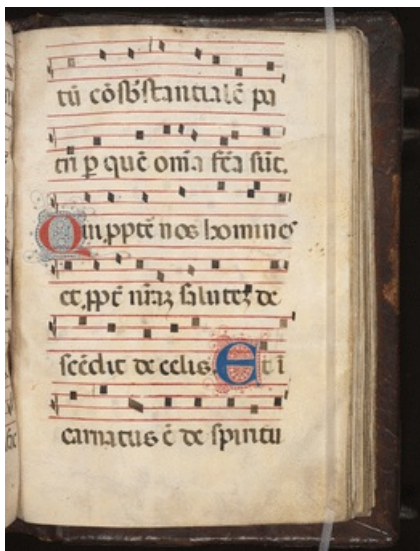 tũ cõsbstantialẽ pa
tri p quẽ om̃a fc̃a sũt.
Qui ppt̃ nos homines
et ppt̃ nr̃aʒ salutẽ de
scẽdit de celis. Et ĩ
carnatus ẽ de spiritu